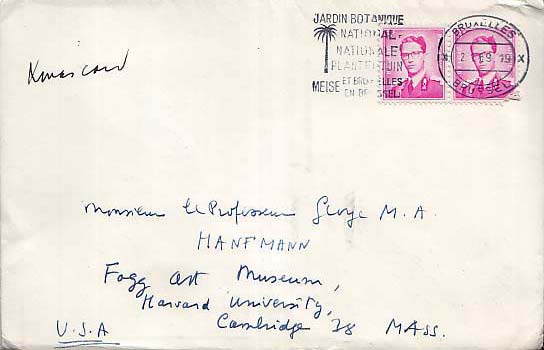 JARDIN BOTANIQUE
NATIONAL-
NATIONALE
PLANTENTUIN
MEISE ET BRUXELLES
EN BRUSSEL
BRUXELLES
BRUSSEL
X X
Xmas card
Monsieur le Professeur George M. A.
HANFMANN
Fogg Art Museum,
Harvard University,
Cambridge 38 MASS.
U.S.A